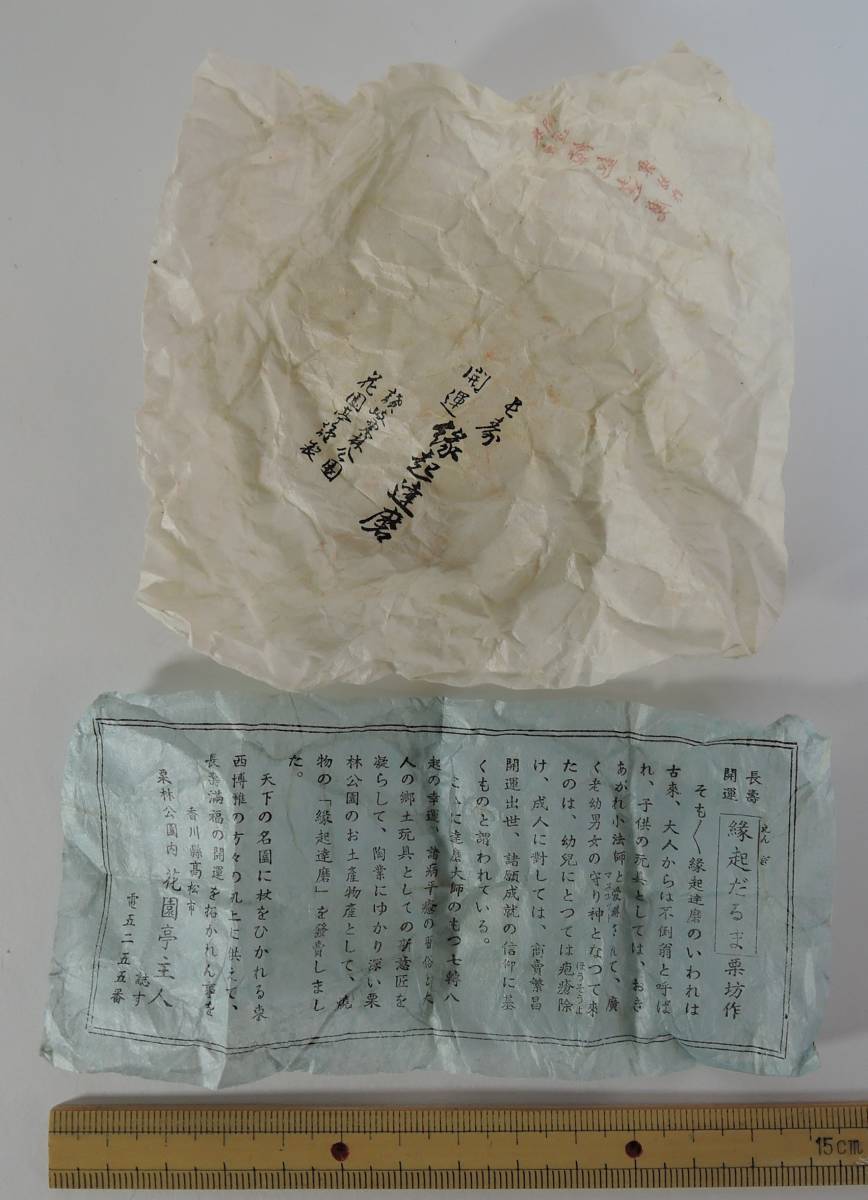 長寿
開運
縁起達磨
讃岐栗林公園
花園亭謹製
長壽
開運
縁起だるま 栗坊作
えんぎ
そも〱縁起達磨のいわれは
古來、大人からは不倒翁と呼ば
れ、子供の玩具としては、おき
あがれ小法師と愛されて、廣
マスコ
く老幼男女の守り神となつて來
たのは、幼兒にとつては疱瘡除
ほうそうよ
け、成人に對しては、商賣繁昌
開運出世、諸願成就の信仰に基
くものと謂われている。
こゝに達磨大師のもつ七轉八
起の幸運、諸病平癒の
人の郷土玩具としての新意匠を
凝らして、陶業にゆかり深い栗
林公園のお土産物産として、燒
物の「緣起達磨」を發賣しまし
た。
天下の名園に杖をひかれる東
西博雅の方々の机上に供えて、
長壽滿福の開運を招かれん事を
香川縣高松市
栗林公園内 花園亭主人
誌す
電五二五五番
15cm